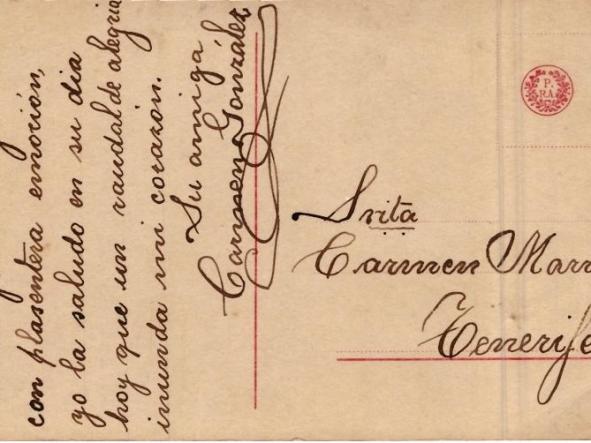 con plasentera emoción,
yo la saludo en su dia
hoy que un raudal de alegria
inunda mi corazón.
Su amiga
Carmen González
P.
RA.
Srita
Carmen Marr
Tenerife